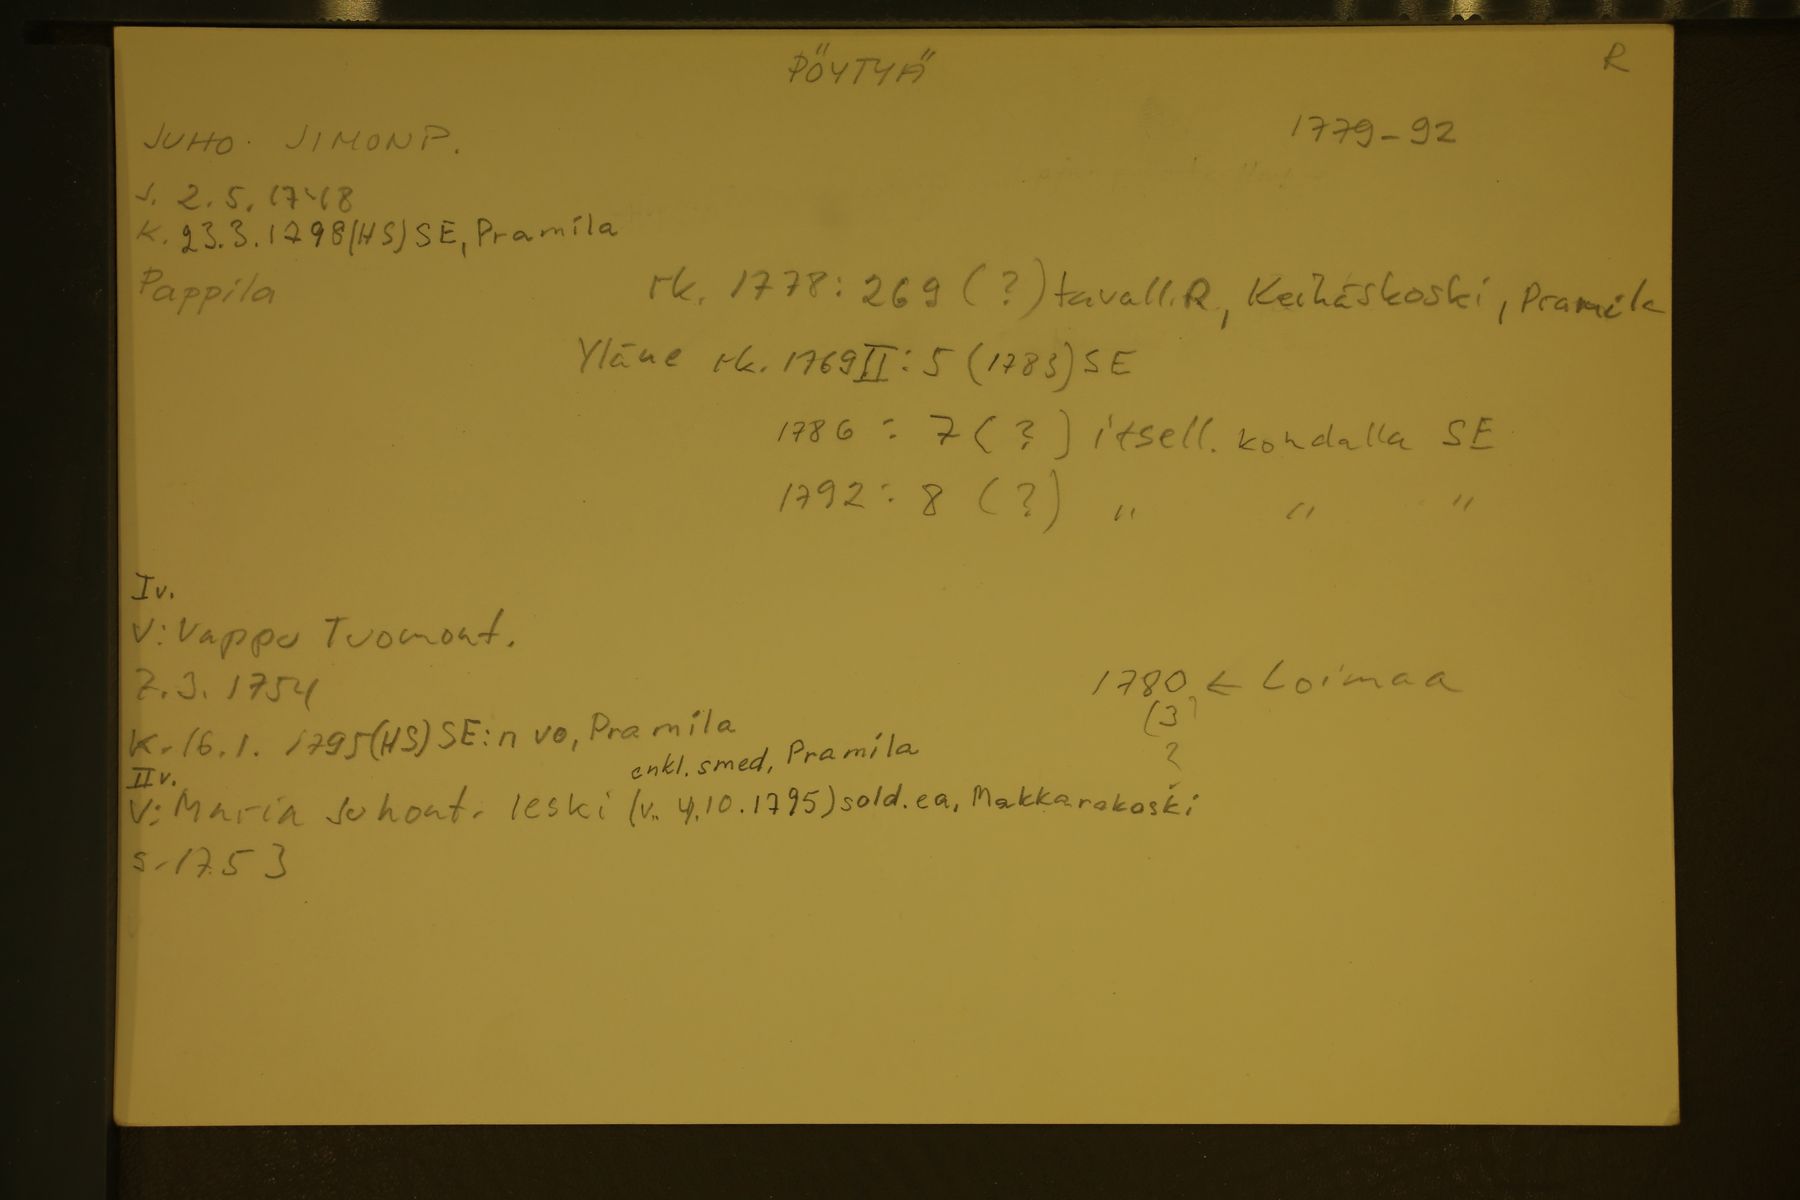 PÖYTYÄ
R
JUHO SIMONP.
1779-92
s. 2.5.1748
k. 23.3.1798(HS) SE, Pramila
Pappila
rk. 1778: 269 (?) tavall. R, Keihäskoski, Pramila
Yläne rk. 1769 II: 5 (1783) SE
1786: 7 (?) itsell. kondalla SE
1792: 8 (?) " " "
I v.
V: Vappu Tuomont.
7.3.1754
1780 ← Loimaa
(3?
?
k. 16.1.1795(HS) SE:n vo, Pramila
enkl. smed, Pramila
II v.
V: Maria Juhont. leski (v. 4.10.1795) sold. ea, Makkarakoski
s. 1753